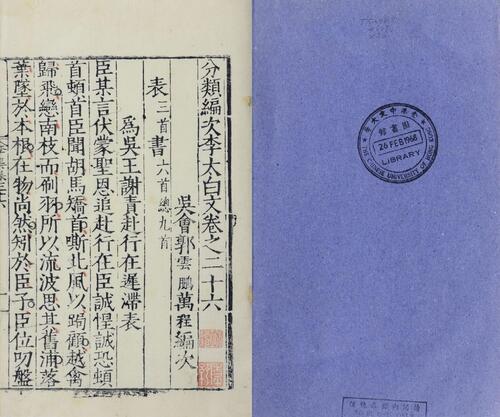 分類編次李太白文卷之二十六
吳會郭雲鵬萬程編次
表三首書六首總九首
為吳王謝責赴行在遲滯表
臣某言伏蒙聖恩追赴行在臣誠惶誠恐頓
首頓首臣聞胡馬矯首嘶北風以跼顧越禽
歸飛戀南枝而刷羽所以流波思其舊浦落
葉墜於本根在物尚然矧於臣子臣位叨盤
香港中文大學
圖書館
26 FEB 1968
LIBRARY
THE CHINESE UNIVERSITY OF HONG KONG